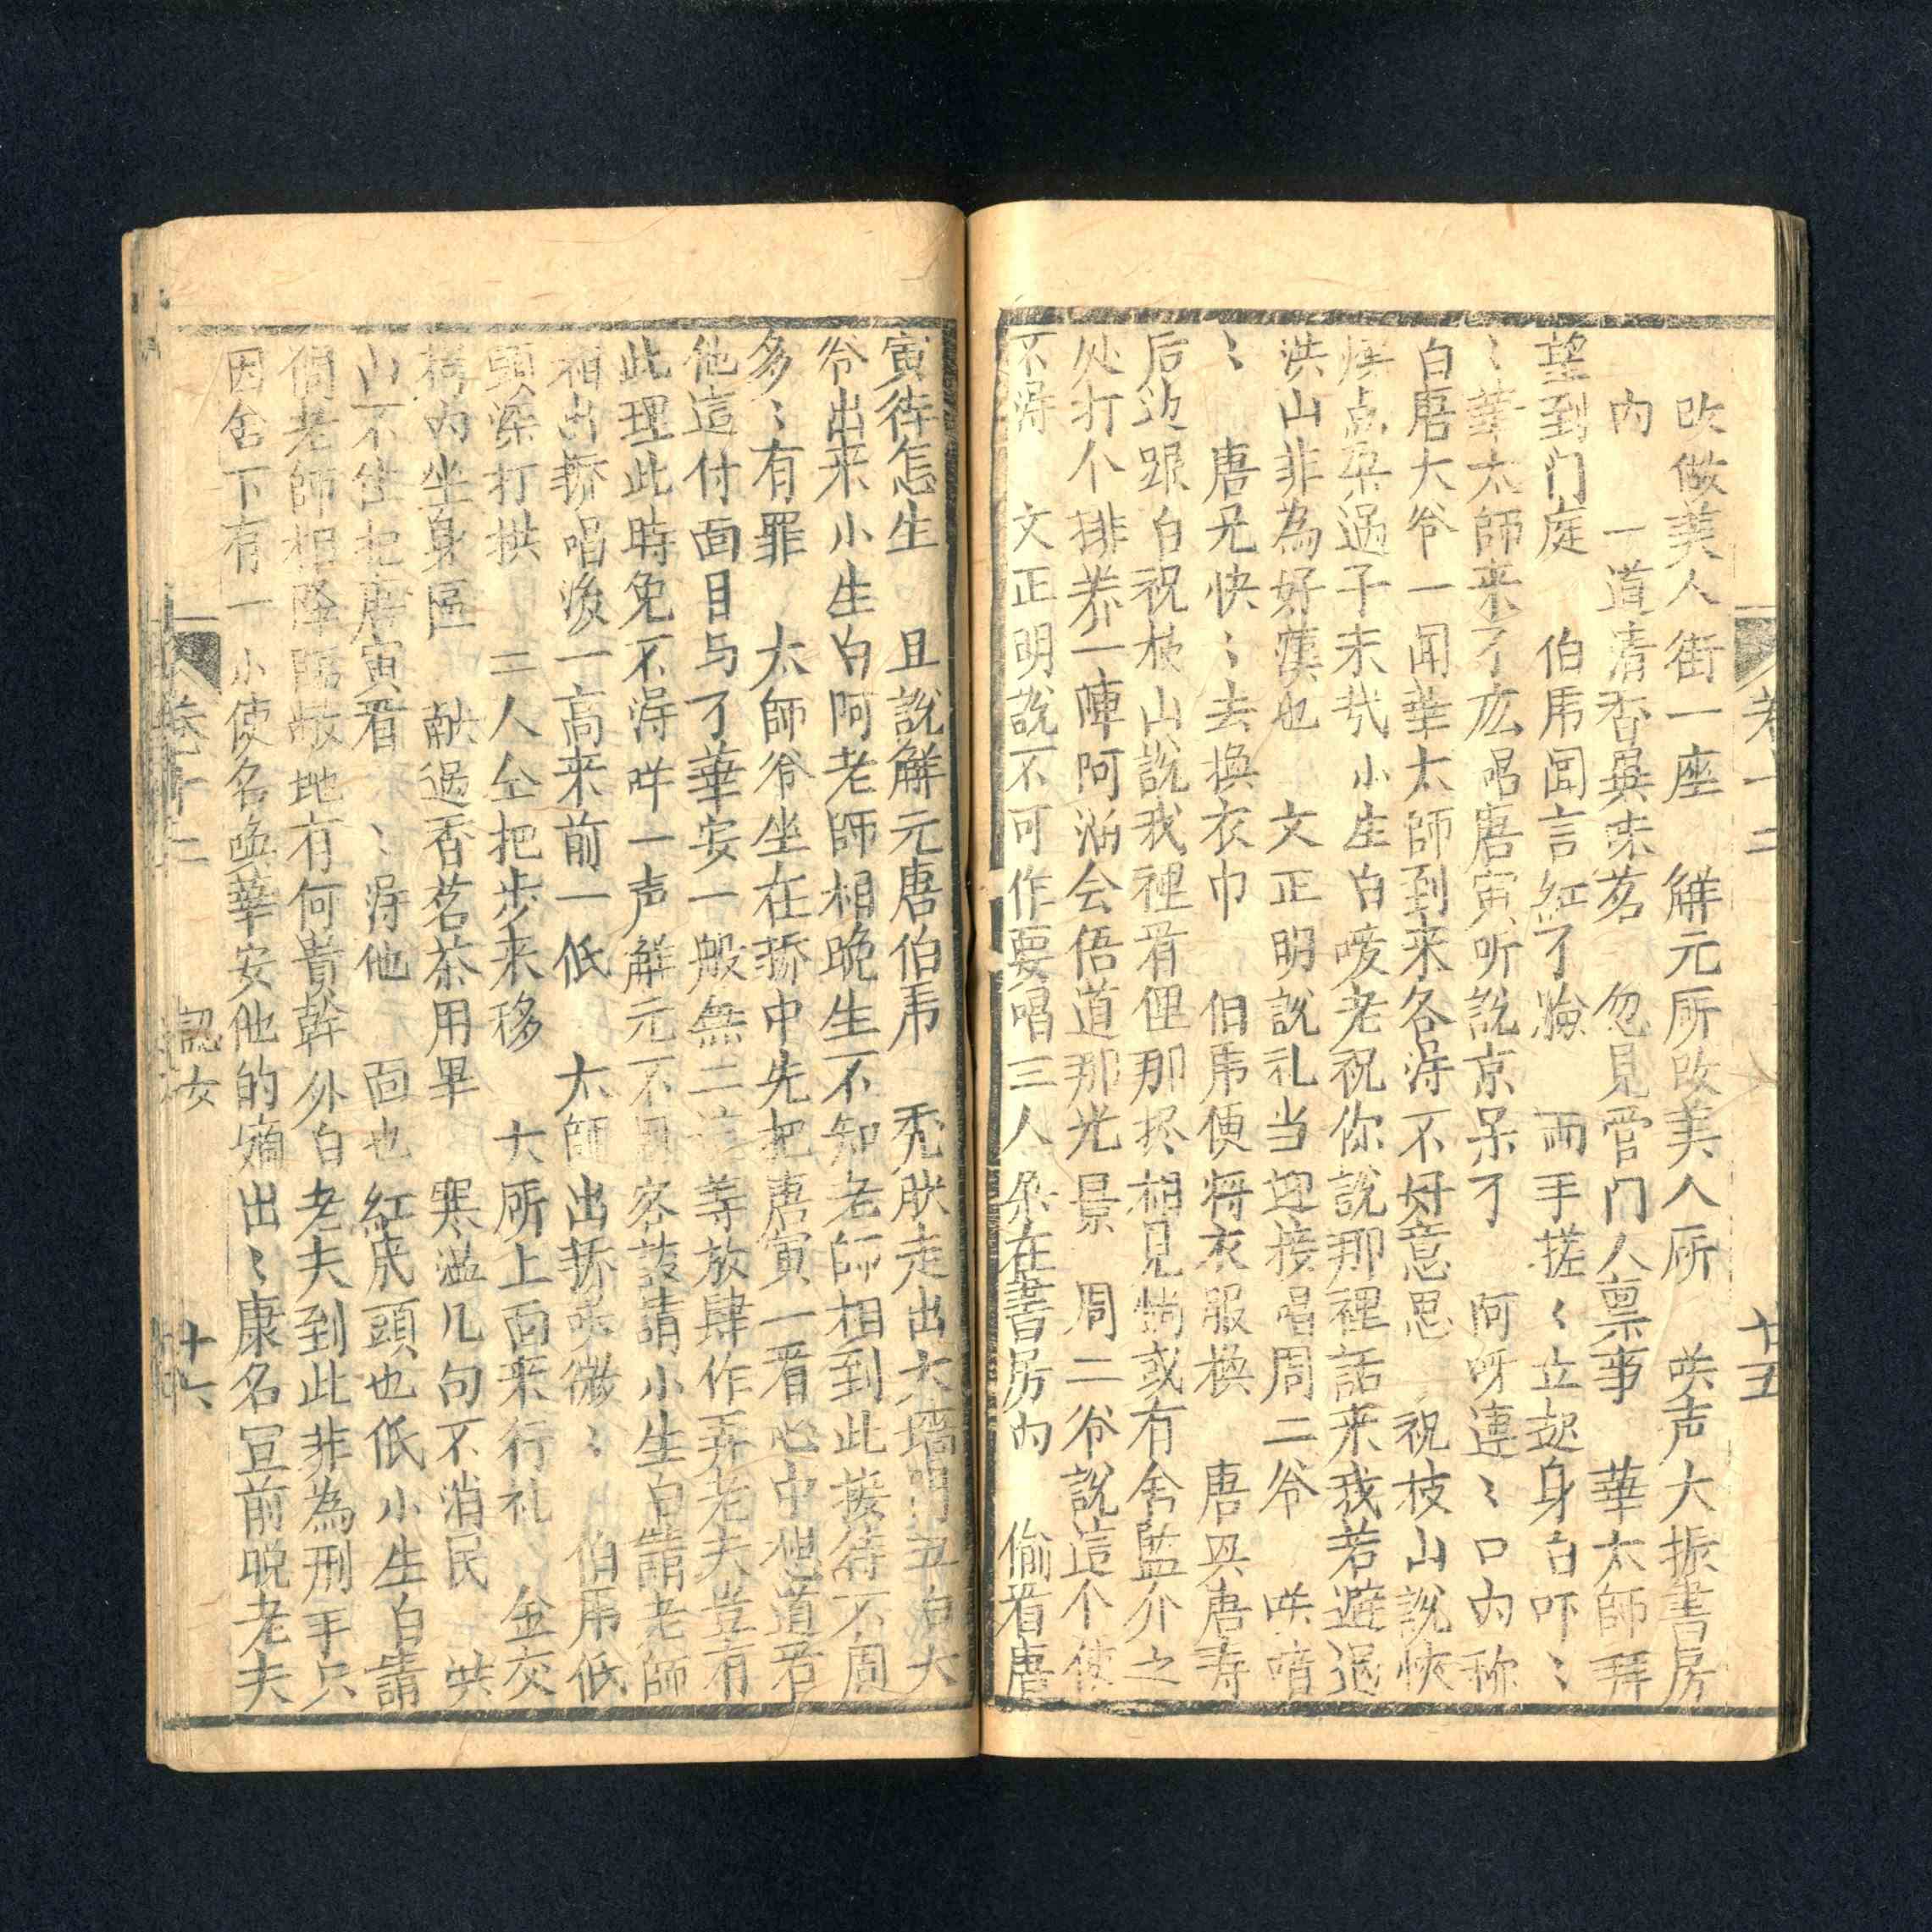 卷十二
十五
改做美人街一座 解元所改美人所 咲声大振書房
内 一道清香異味茗 忽見管门人禀事 華太師拜
望到门庭 伯虎闻言紅了臉 両手搓〻立起身白吓〻
〻華太師来了広唱唐寅听説京呆了 阿呀連〻口内称
白唐大爷一闻華太師到来各淂不好意思 祝枝山説恢
過子末㢤 小生白嗳老祝你説那裡話来我若避過
洪山非為好漢也 文正明説礼当迎接唱周二爷 咲喑
〻 唐兄快〻去换衣巾 伯虎便将衣服换 唐兴唐寿
后边跟白祝枝山説我裡看俚那振相見倘或有舍尷介之
处打个排恭一陣阿 会悟道那光景 周二爷説這个使
不淂 文正明説不可作要唱三人朵在書房内 偷看唐
寅待怎生 且説解元唐伯虎 秃肤走出大墙門丑白大
爷出来小生白阿老師相晚生不知老師相到此接待不周
多〻有罪 太師爷坐在轿中先把唐寅一看心中想道看
他這付面目与了華安一般無二 等放肆作弄老夫豈有
此理此時免不淂咩一声解元不 客鼓請小生白請老師
相出轿唱後一高来前一低 太師出轿咲微〻 伯虎低
頭深打拱 二人仝把步来移 大所上面来行礼 金交
椅内坐身區 献過香茗茶用畢 寒温几句不消民 咲
山不住把唐寅看 〻淂他 面也紅来頭也低小生白請
問老師相降臨敝地有何貴幹外白老夫到此非為別手只
因舍下有一小使名喚華安他的嫡出〻康名宣前晚老夫
卷十二
認女
十六